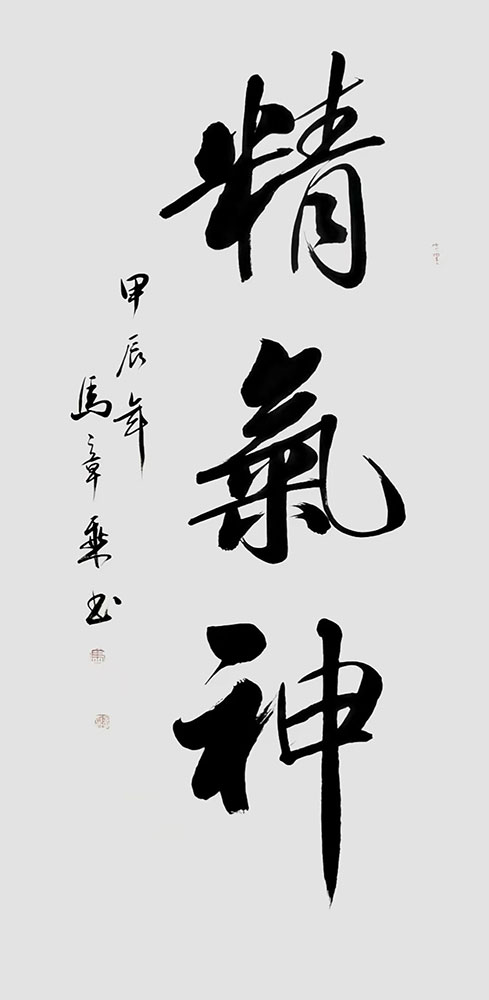 精氣神
甲辰年
馬章乘書